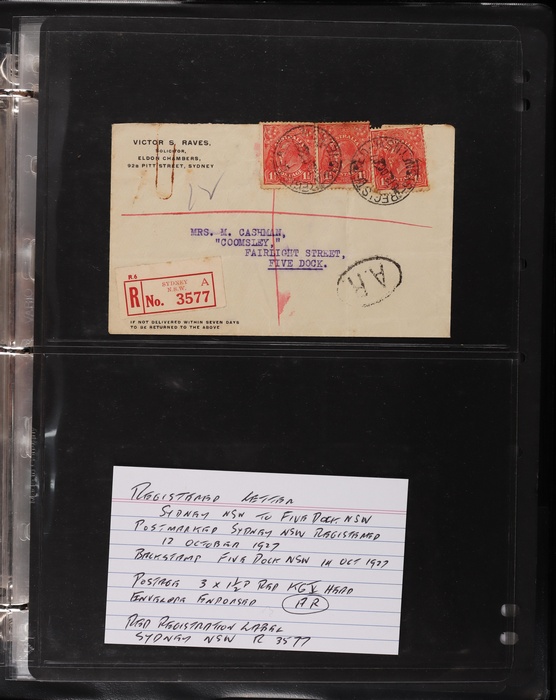 VICTOR S. RAVES,
SOLICITOR,
ELDON CHAMBERS,
92B PITT STREET, SYDNEY
MRS. M. CASHMAN,
"COOMSLEY,"
FAIRLIGHT STREET,
FIVE DOCK.
A.R.
R6
SYDNEY A
N.S.W.
R No. 3577
IF NOT DELIVERED WITHIN SEVEN DAYS
TO BE RETURNED TO THE ABOVE
REGISTERED LETTER
SYDNEY NSW TO FIVE DOCK NSW
POSTMARKED SYDNEY NSW REGISTERED
12 OCTOBER 1927
BACKSTAMP FIVE DOCK NSW 14 OCT 1927
POSTAGE 3 x 1½P RED KGV HEAD
ENVELOPE ENDORSED AR
RED REGISTRATION LABEL
SYDNEY NSW R 3577